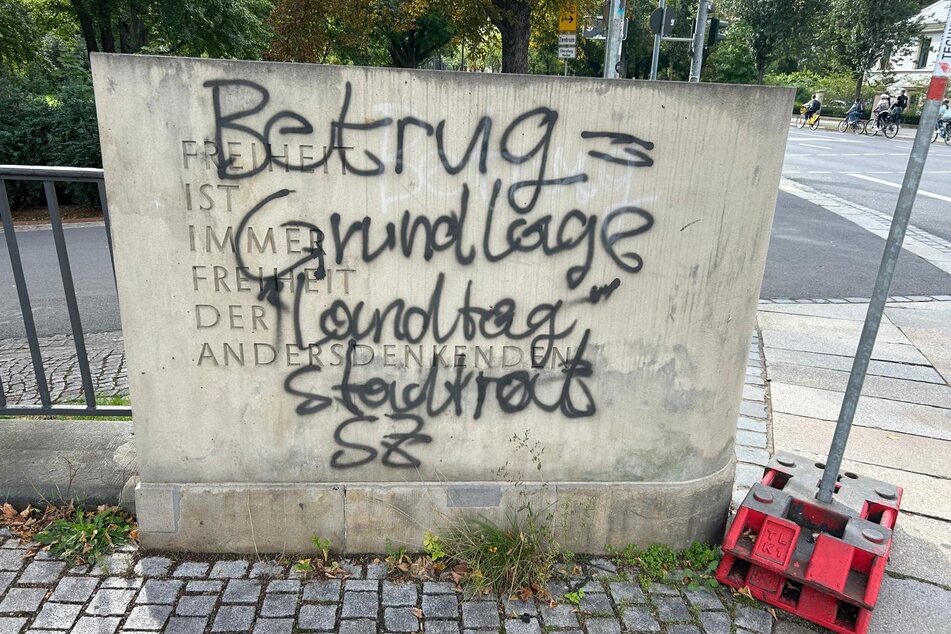 Betrug =
Grundlage
"Landtag"
Stadtrat
SZ
FREIHEIT
IST
IMMER
FREIHEIT
DER
ANDERSDENKENDEN
Zentrum
TL
K1